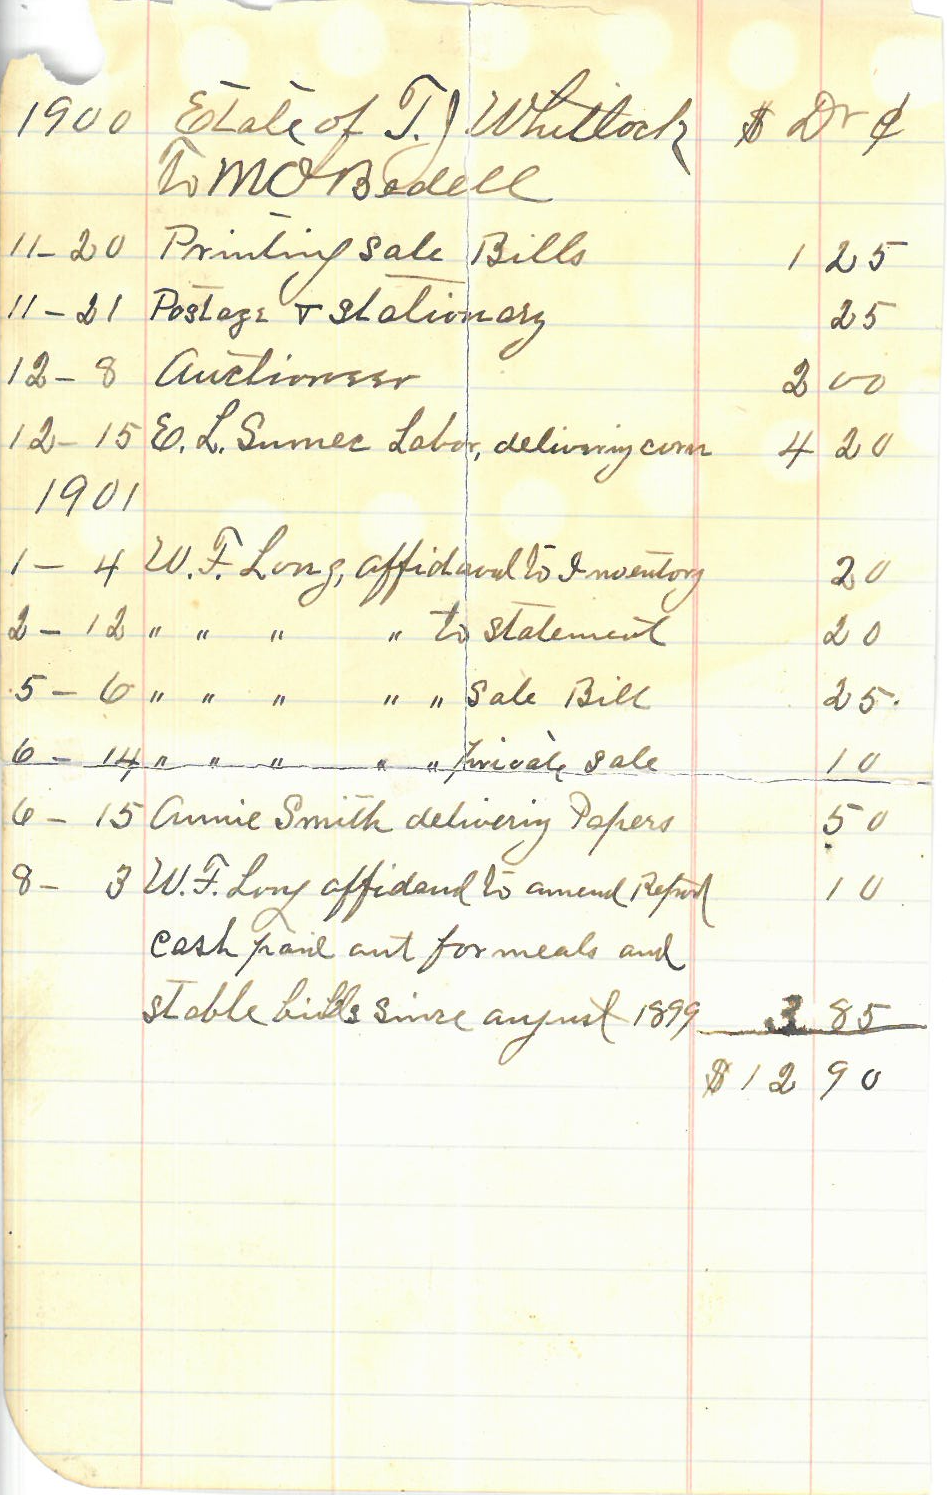 1900 Estate of T. J. Whitlock $ Dr ¢
To M O Bedell
11-20 Printing Sale Bills 1 25
11-21 Postage & Stationary 25
12-8 Auctioneer 2 00
12-15 E. L. Sumec Labor, delivering corn 4 20
1901
1-4 W. F. Long, affidavid to Inventory 20
2-12 " " " " to statement 20
5-6 " " " " " Sale Bill 25.
6-14 " " " " " Private Sale 10
6-15 Annie Smith delivering Papers 50
8-3 W. F. Long affidavid to amend Report 10
Cash paid out for meals and
stable bills since august 1899 3 85
$12 90